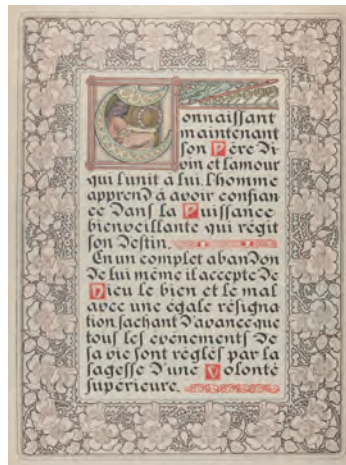 Connaissant
maintenant
son Père Di-
vin et l'amour
qui l'unit à lui. l'homme
apprend à avoir confian
ce dans la Puissance
bienveillante qui régit
son Destin.
En un complet abandon
de lui même il accepte de
Dieu le bien et le mal
avec une égale résigna
tion, sachant d'avance que
tous les evènements de
sa vie sont réglés par la
sagesse d'une Volonté
supérieure.